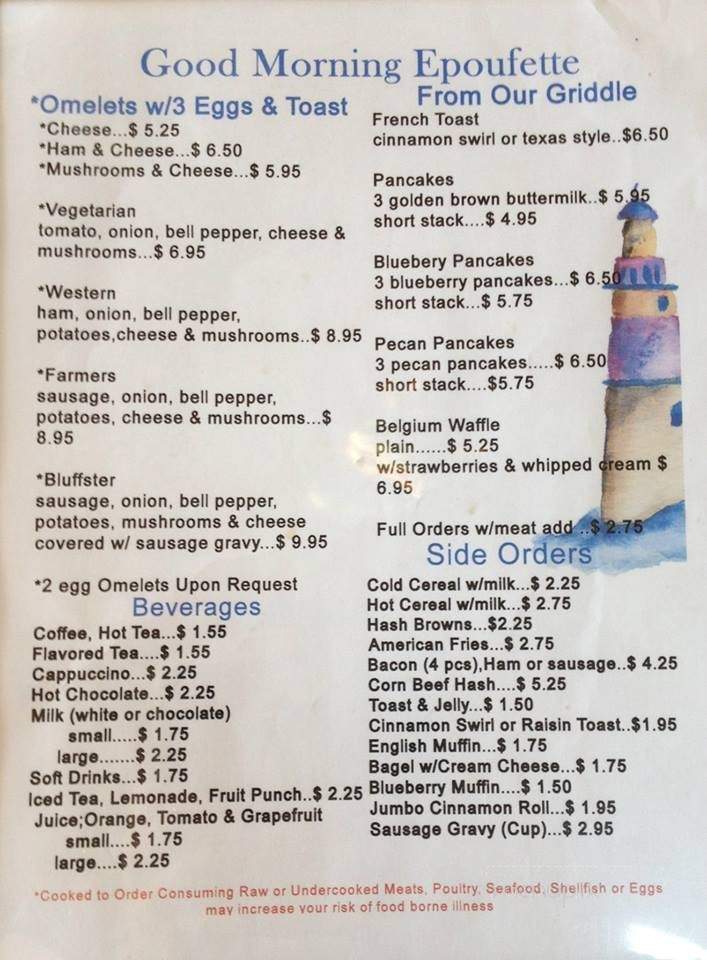 Good Morning Epoufette
*Omelets w/3 Eggs & Toast
*Cheese...$ 5.25
*Ham & Cheese...$ 6.50
*Mushrooms & Cheese...$ 5.95
*Vegetarian
tomato, onion, bell pepper, cheese &
mushrooms...$ 6.95
*Western
ham, onion, bell pepper,
potatoes,cheese & mushrooms..$ 8.95
*Farmers
sausage, onion, bell pepper,
potatoes, cheese & mushrooms...$
8.95
*Bluffster
sausage, onion, bell pepper,
potatoes, mushrooms & cheese
covered w/ sausage gravy...$ 9.95
*2 egg Omelets Upon Request
Beverages
Coffee, Hot Tea...$ 1.55
Flavored Tea....$ 1.55
Cappuccino...$ 2.25
Hot Chocolate...$ 2.25
Milk (white or chocolate)
small.....$ 1.75
large.......$ 2.25
Soft Drinks...$ 1.75
Iced Tea, Lemonade, Fruit Punch..$ 2.25
Juice;Orange, Tomato & Grapefruit
small....$ 1.75
large....$ 2.25
From Our Griddle
French Toast
cinnamon swirl or texas style..$6.50
Pancakes
3 golden brown buttermilk..$ 5.95
short stack....$ 4.95
Bluebery Pancakes
3 blueberry pancakes...$ 6.50
short stack...$ 5.75
Pecan Pancakes
3 pecan pancakes.....$ 6.50
short stack....$5.75
Belgium Waffle
plain......$ 5.25
w/strawberries & whipped cream $
6.95
Full Orders w/meat add ..$ 2.75
Side Orders
Cold Cereal w/milk...$ 2.25
Hot Cereal w/milk...$ 2.75
Hash Browns...$2.25
American Fries...$ 2.75
Bacon (4 pcs),Ham or sausage..$ 4.25
Corn Beef Hash....$ 5.25
Toast & Jelly...$ 1.50
Cinnamon Swirl or Raisin Toast..$1.95
English Muffin...$ 1.75
Bagel w/Cream Cheese...$ 1.75
Blueberry Muffin....$ 1.50
Jumbo Cinnamon Roll...$ 1.95
Sausage Gravy (Cup)...$ 2.95
*Cooked to Order Consuming Raw or Undercooked Meats, Poultry, Seafood, Shellfish or Eggs
may increase your risk of food borne illness